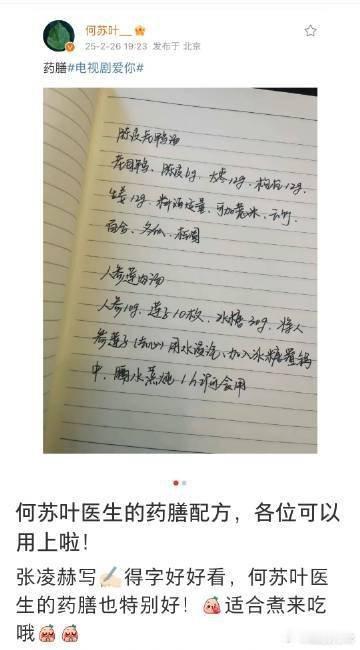 何苏叶__
25-2-26 19:23 发布于 北京
药膳#电视剧爱你#
陈皮老鸭汤
老鸭、陈皮6g、大枣12g、枸杞12g、
生姜12g、料酒适量、可加薏米、玉竹、
百合、冬瓜、桂圆
人参莲肉汤
人参10g、莲子10枚、冰糖30g、将人
参莲子(去心)用水浸泡、加入冰糖置锅
中、隔水蒸炖1h即可食用
何苏叶医生的药膳配方，各位可以
用上啦！
张凌赫写✍🏻得字好好看，何苏叶医
生的药膳也特别好！适合煮来吃
哦